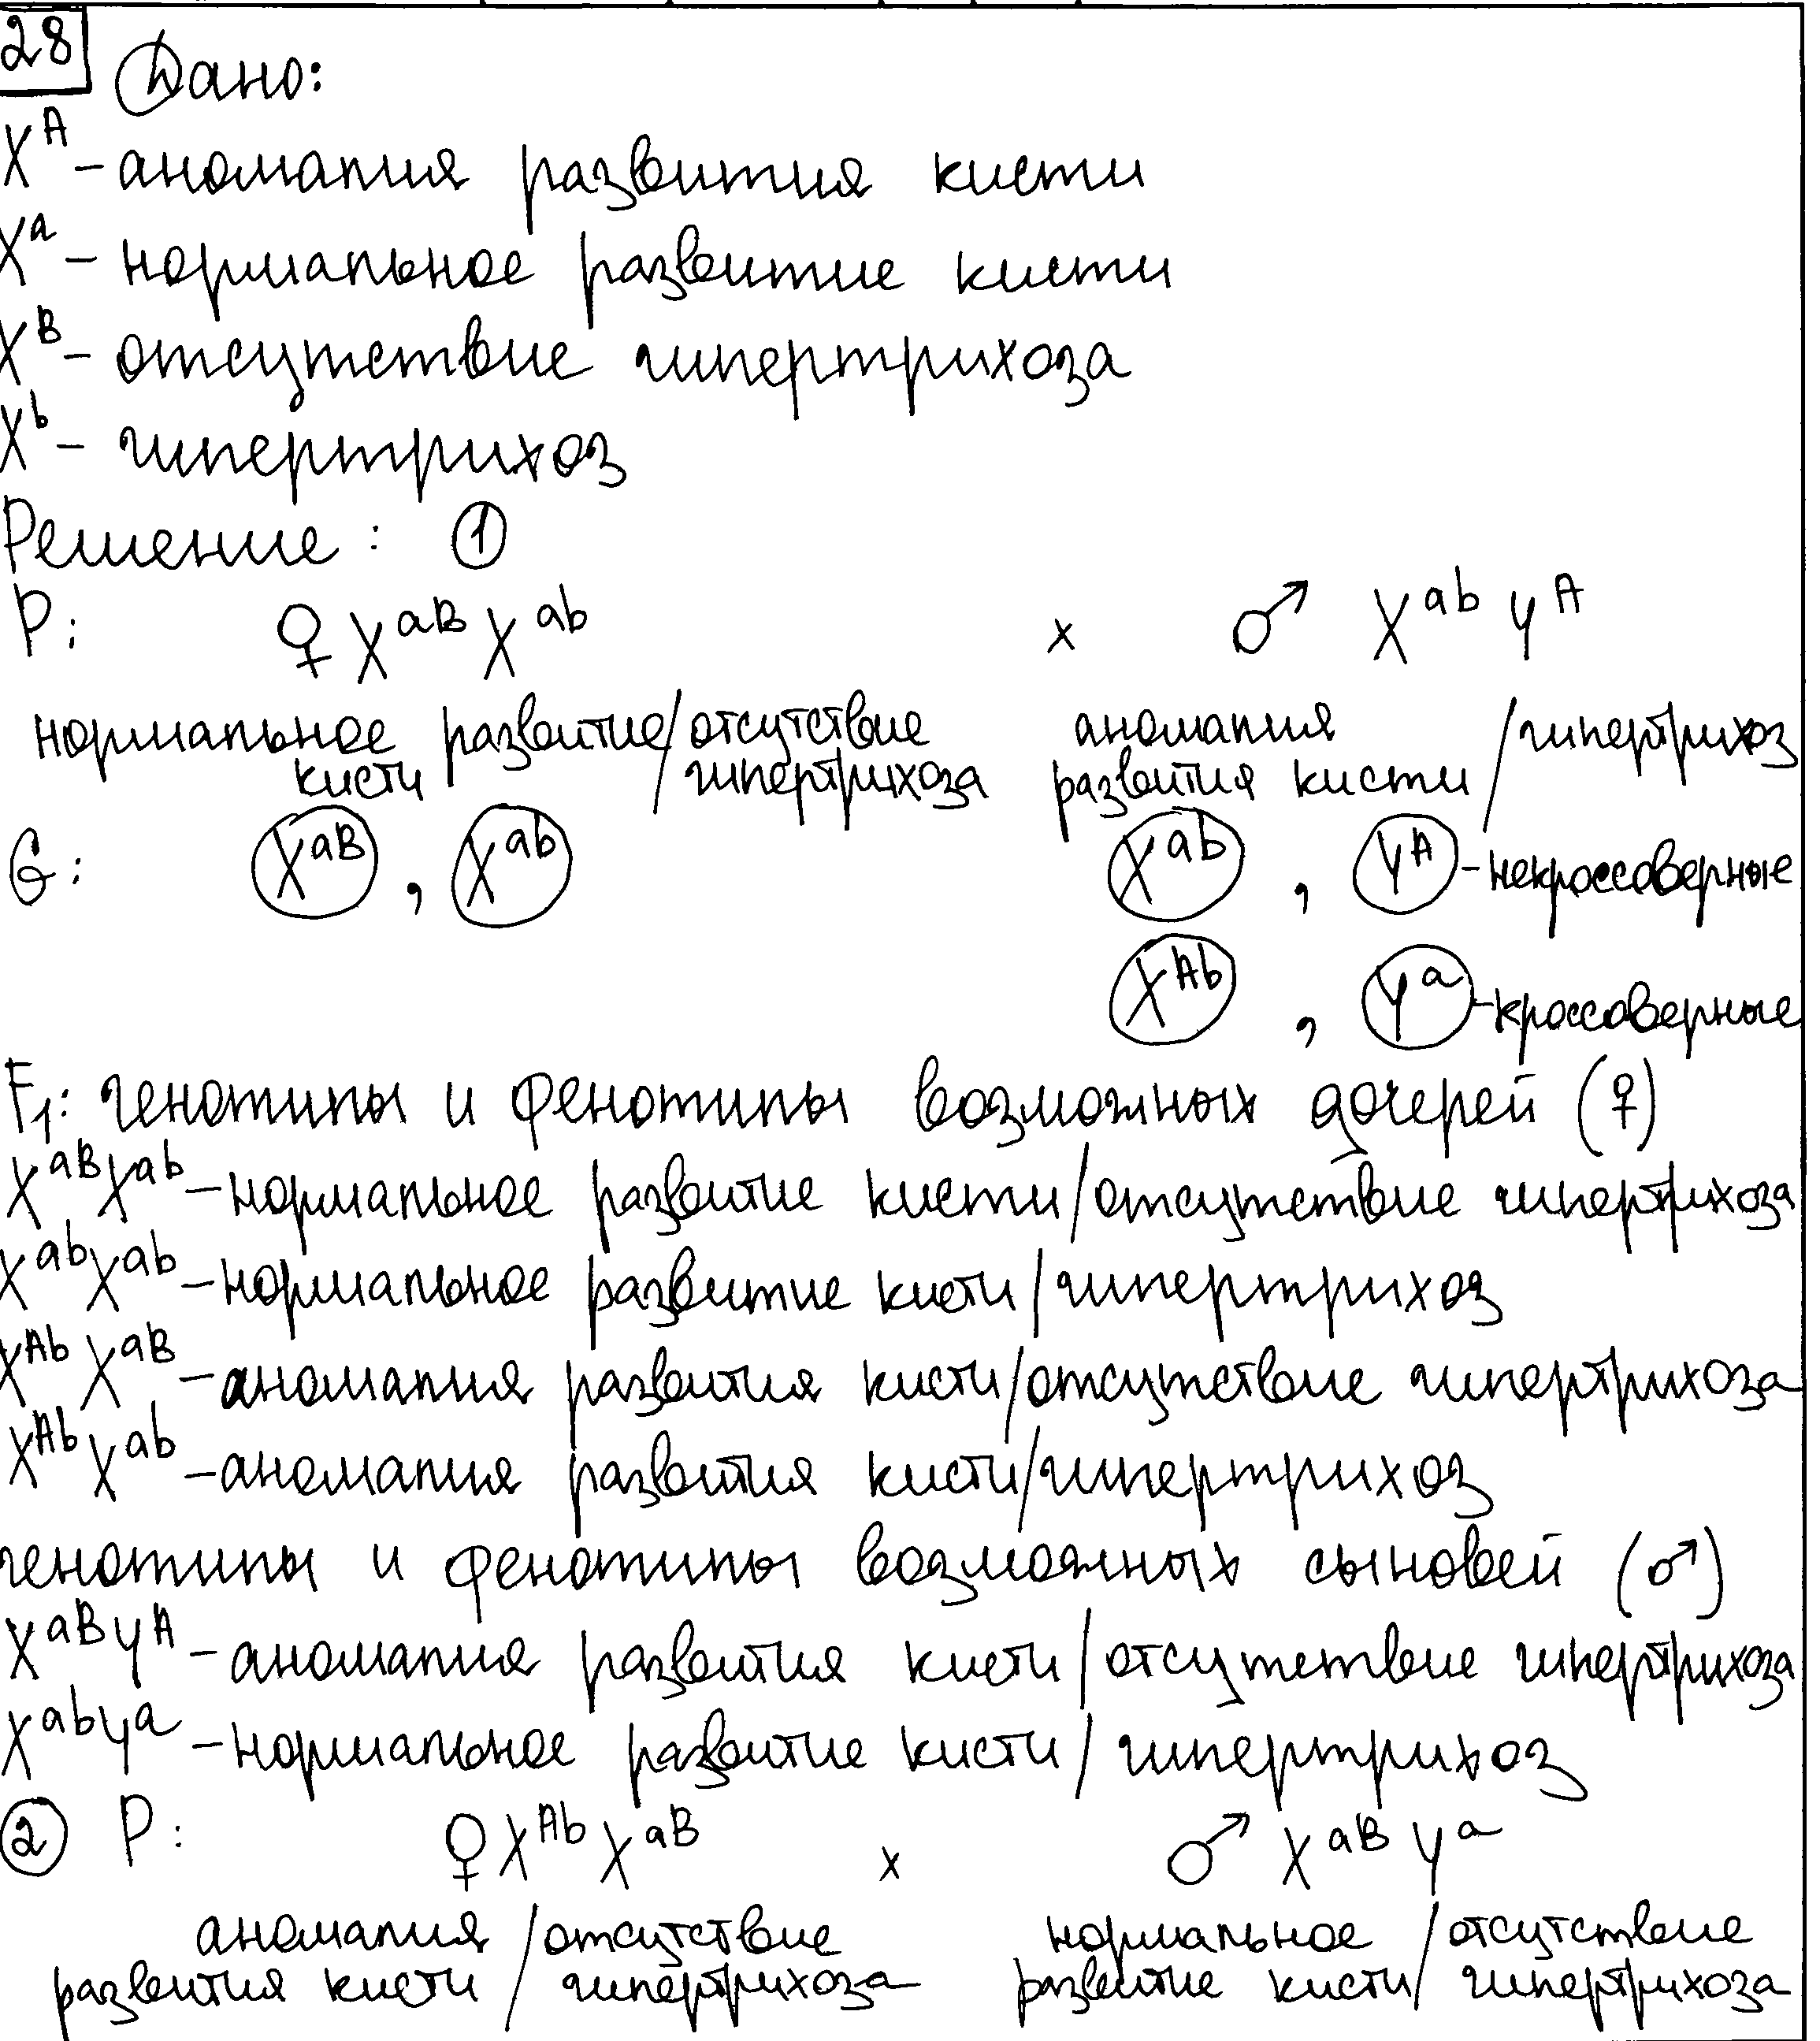 28 Дано:
X^A – аномалия развития кисти
X^a – нормальное развитие кисти
X^B – отсутствие гипертрихоза
X^b – гипертрихоз
Решение: ①
P: ♀ X^aB X^ab x ♂ X^ab Y^A
нормальное развитие/отсутствие аномалия /гипертрихоз
кисти / гипертрихоза развития кисти /
G: X^aB , X^ab X^ab , Y^A – некроссоверные
X^Ab , Y^a – кроссоверные
F₁: генотипы и фенотипы возможных дочерей (♀)
X^aB X^ab – нормальное развитие кисти/отсутствие гипертрихоза
X^ab X^ab – нормальное развитие кисти/гипертрихоз
X^Ab X^aB – аномалия развития кисти/отсутствие гипертрихоза
X^Ab X^ab – аномалия развития кисти/гипертрихоз
генотипы и фенотипы возможных сыновей (♂)
X^aB Y^A – аномалия развития кисти/отсутствие гипертрихоза
X^ab Y^a – нормальное развитие кисти/гипертрихоз
② P: ♀ X^Ab X^aB x ♂ X^aB Y^a
аномалия /отсутствие нормальное /отсутствие
развития кисти / гипертрихоза развитие кисти/ гипертрихоза